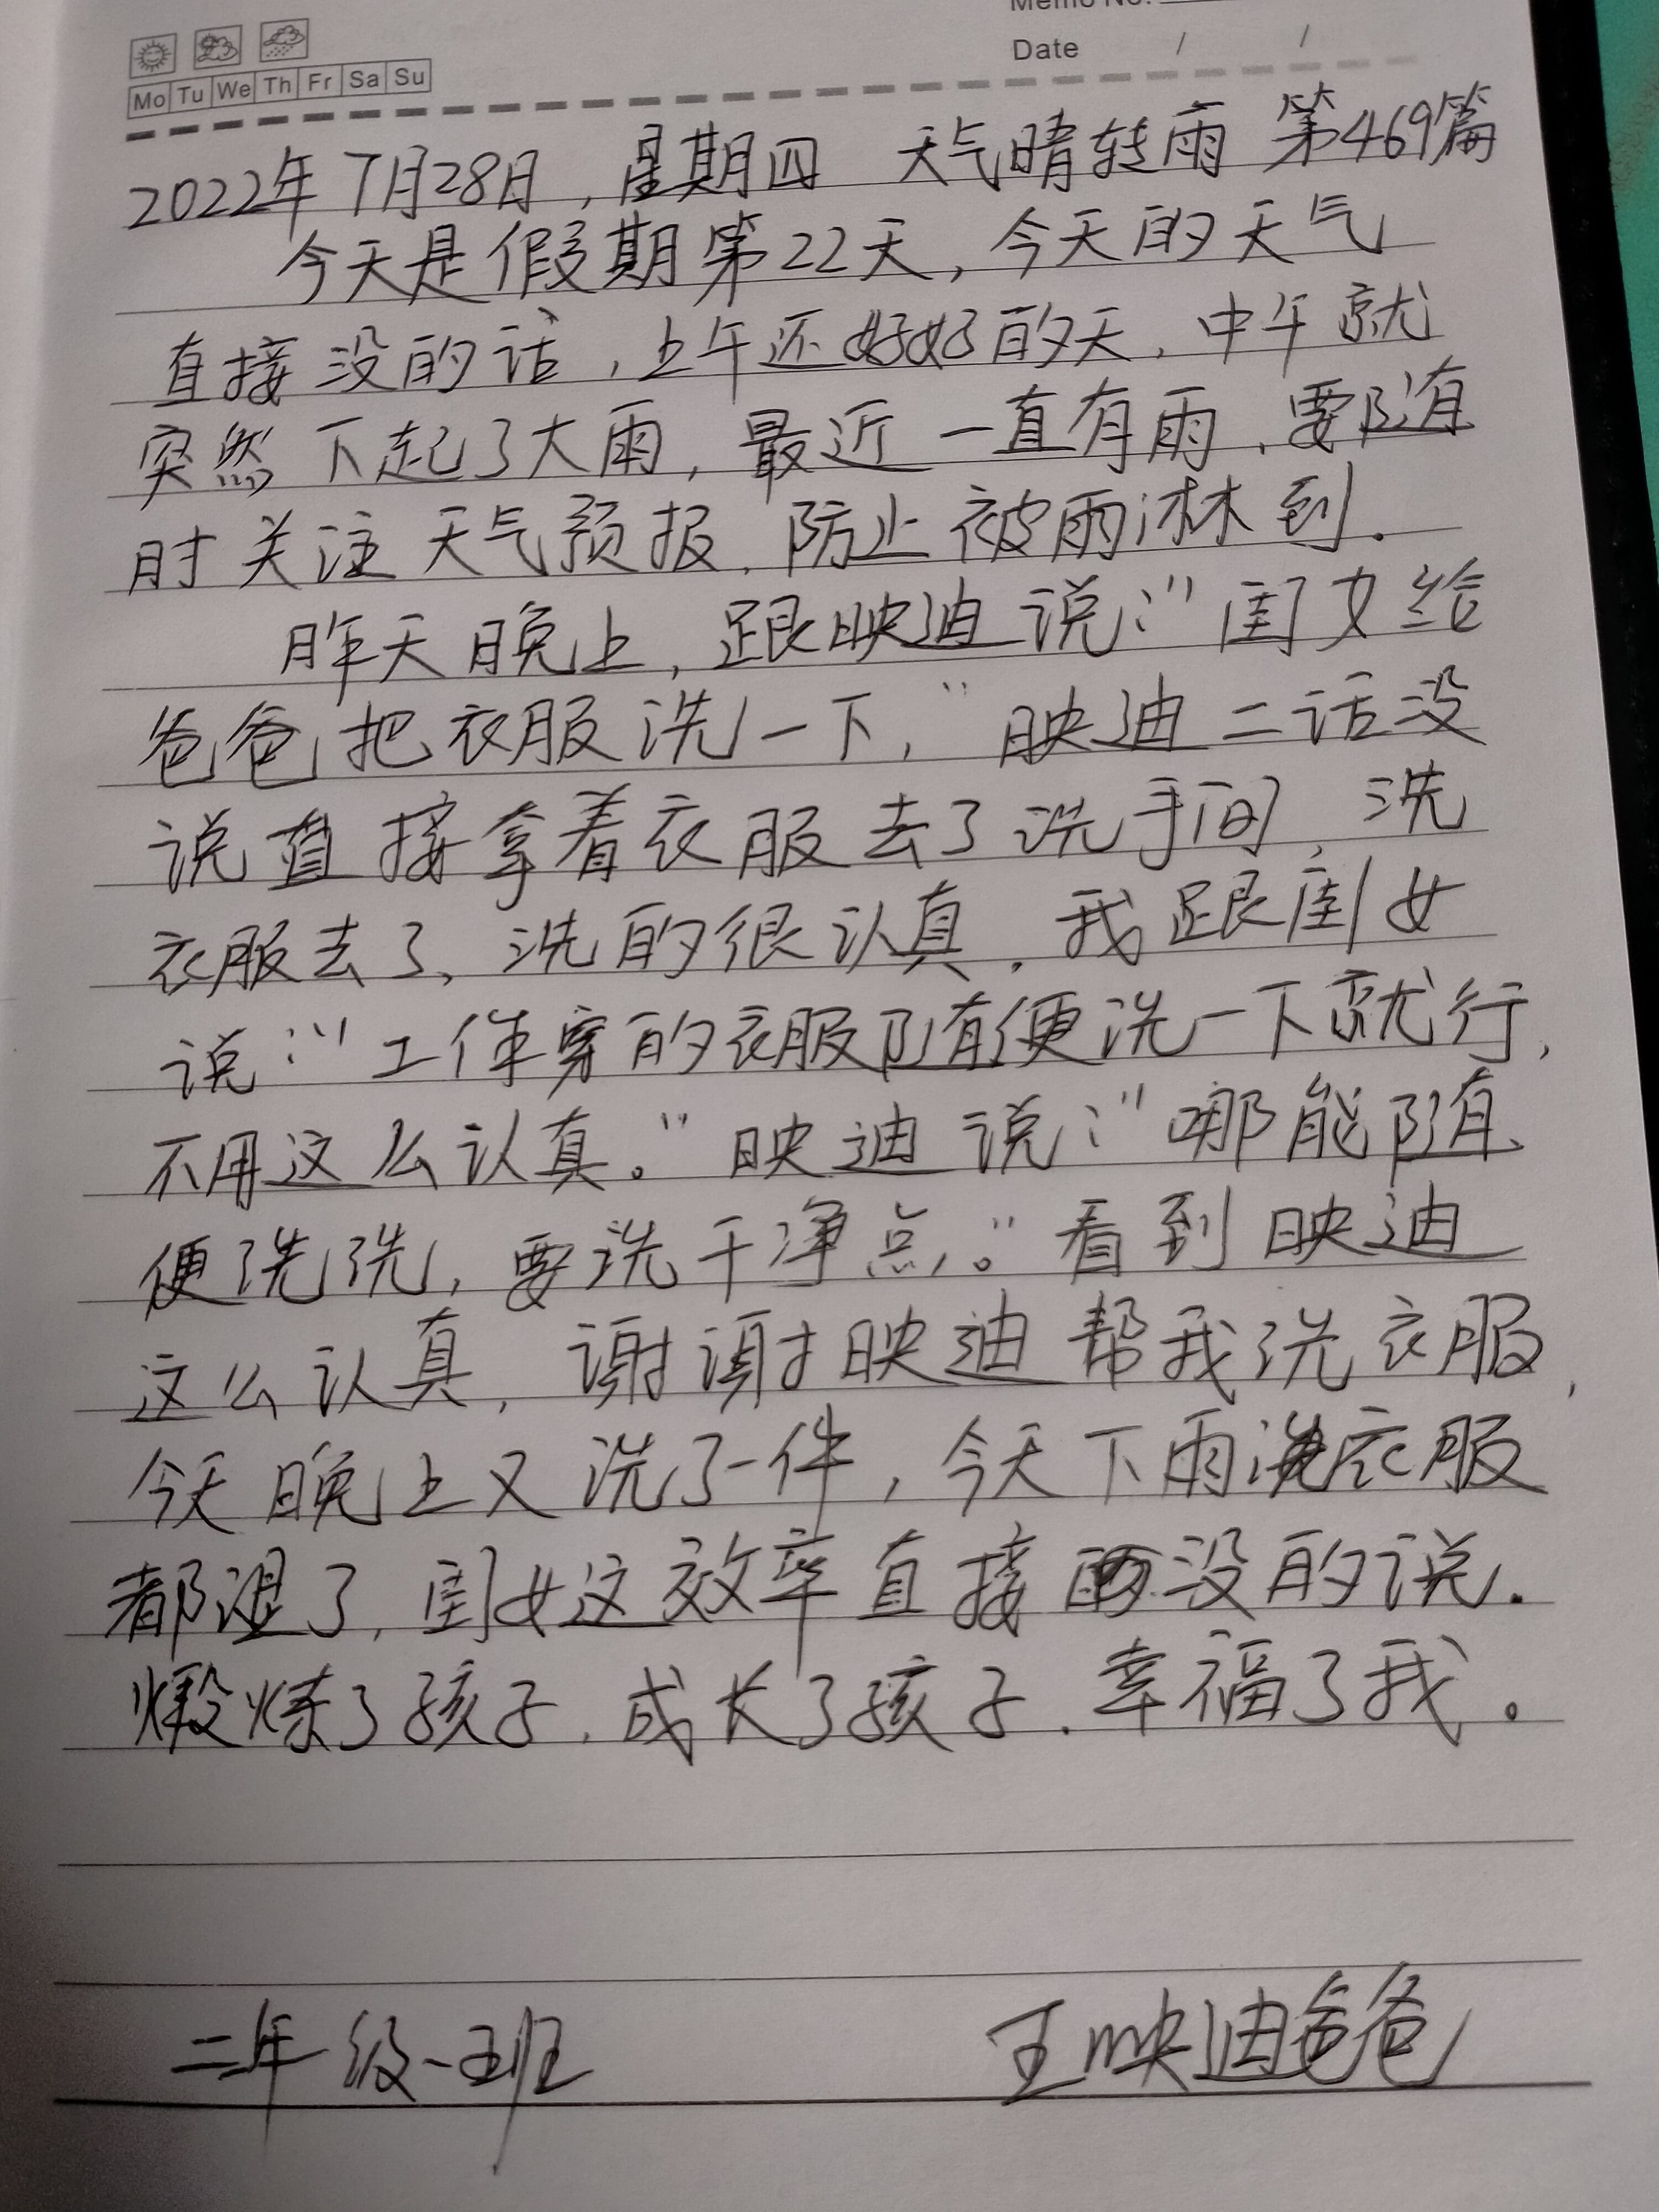 Memo No.
Date / /
Mo Tu We Th Fr Sa Su
2022年7月28日,星期四 天气晴转雨 第469篇
今天是假期第22天,今天的天气
直接没的话,上午还好好的天,中午就
突然下起了大雨,最近一直有雨,要随
时关注天气预报,防止被雨淋到.
昨天晚上,跟映迪说:"闺女给
爸爸把衣服洗一下,"映迪二话没
说直接拿着衣服去了洗手间,洗
衣服去了,洗的很认真,我跟闺女
说:"工作穿的衣服随便洗一下就行,
不用这么认真。"映迪说:"哪能随
便洗洗,要洗干净点。"看到映迪
这么认真,谢谢映迪帮我洗衣服,
今天晚上又洗了一件,今天下雨衣服
都湿了,闺女这效率直接没的说.
煅炼了孩子,成长了孩子,幸福了我。
二年级一班 王映迪爸爸